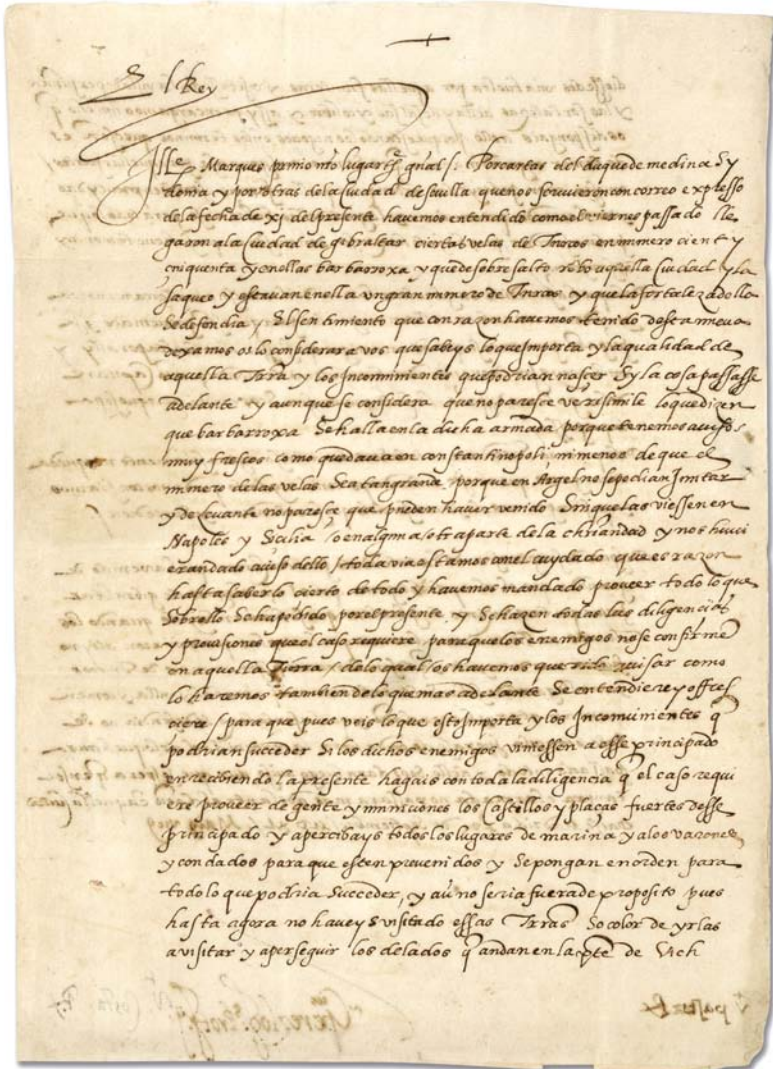 El Rey
Ille Marques primo nro lugarth gnal /. Por cartas del duque de medina Sy
donia y por otras de la ciudad de seuilla que nos scriuieron con correo expresso
de la fecha de xj del presente hauemos entendido como el viernes passado lle
garon a la ciudad de gibraltar ciertas velas de Turcos en numero cient y
cinquenta y en ellas barbarroxa y que de sobresalto robo aquella ciudad y la
saqueo y estauan en ella un gran numero de Turcos y que la fortaleza della
se defendia / El sentimiento que con razon hauemos tenido desta nueua
dexamos os lo considerar a vos que sabeys lo que importa y la qualidad de
aquella Trra y los Inconuinientes que podrian nascer Sy la cosa passasse
adelante y aunque se considera que no paresce verisimile lo que dizen
que barbarroxa se halla en la dicha armada porque tenemos auisos
muy frescos como quedaua en constantinopoli ni menos de que el
numero de las velas sea tan grande, porque en Argel no se podian Juntar
y de leuante no paresce que pueden hauer venido Sin que las viessen en
Napoles y Sicilia / o en alguna otra parte de la chriandad y nos huui
eran dado auiso dello / toda via estamos con el cuydado que es razon
hasta saber lo cierto de todo y hauemos mandado proueer todo lo que
sobrello se ha podido por el presente y se hazen todas las diligencias
y prouisiones que el caso requiere para que los enemigos no se confirmen
en aquella Tierra / de lo qual os hauemos querido auisar como
lo haremos tambien de lo que mas adelante se entendiere y offres
ciere / para que pues veis lo que esto Importa y los Inconuinientes q
podrian succeder Si los dichos enemigos viniessen a esse principado
en recibiendo la presente hagais con toda la diligencia q el caso requi
ere proueer de gente y municiones los Castillos y plaças fuertes desse
principado y apercibays todos los lugares de marina y a los varones
y condados para que esten preuenidos y se pongan en orden para
todo lo que podria succeder, y aū no seria fuera de proposito pues
hasta agora no haueys visitado essas Trras So color de yrlas
a visitar y a perseguir los delados q andan en la pte de Vich